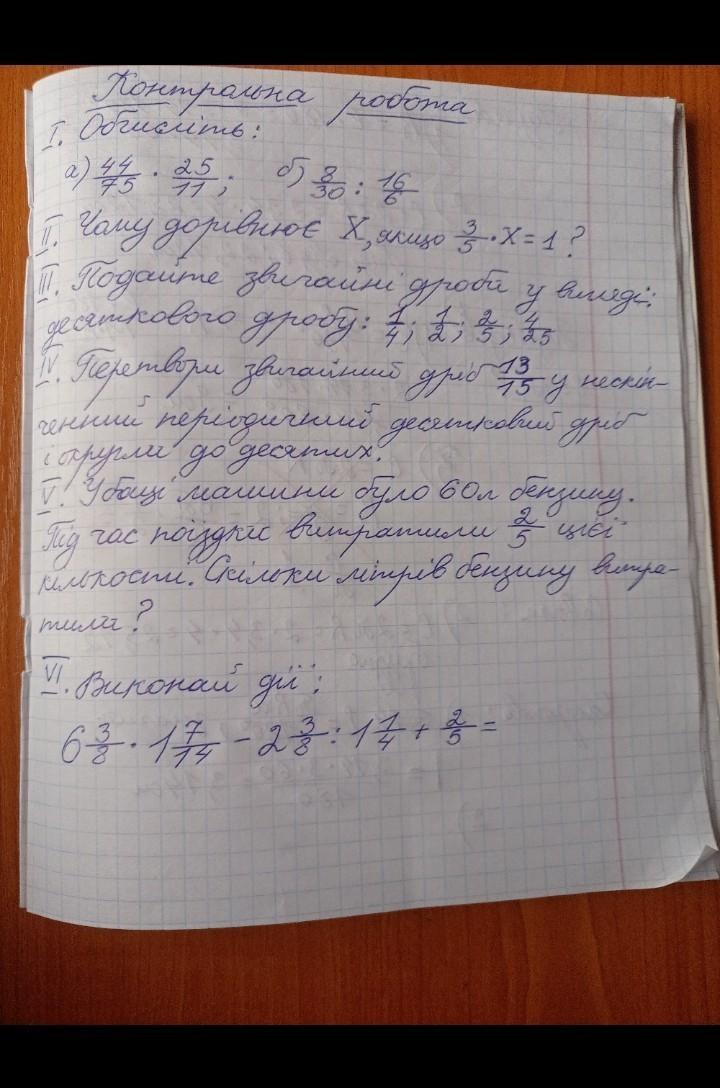 Контрольна робота
I. Обчисліть:
а) 44/75 · 25/11; б) 8/30 : 16/6
II. Чому дорівнює X, якщо 3/5 · X = 1?
III. Подайте звичайні дроби у вигляді:
десяткового дробу: 1/4; 1/2; 2/5; 4/25
IV. Перетвори звичайний дріб 13/15 у нескін-
ченний періодичний десятковий дріб
і округли до десятих.
V. У баці машини було 60л бензину.
Під час поїздки витратили 2/5 цієї
кількості. Скільки літрів бензину витра-
тили?
VI. Виконай дії:
6 3/8 · 1 7/14 - 2 3/8 : 1 1/4 + 2/5 =